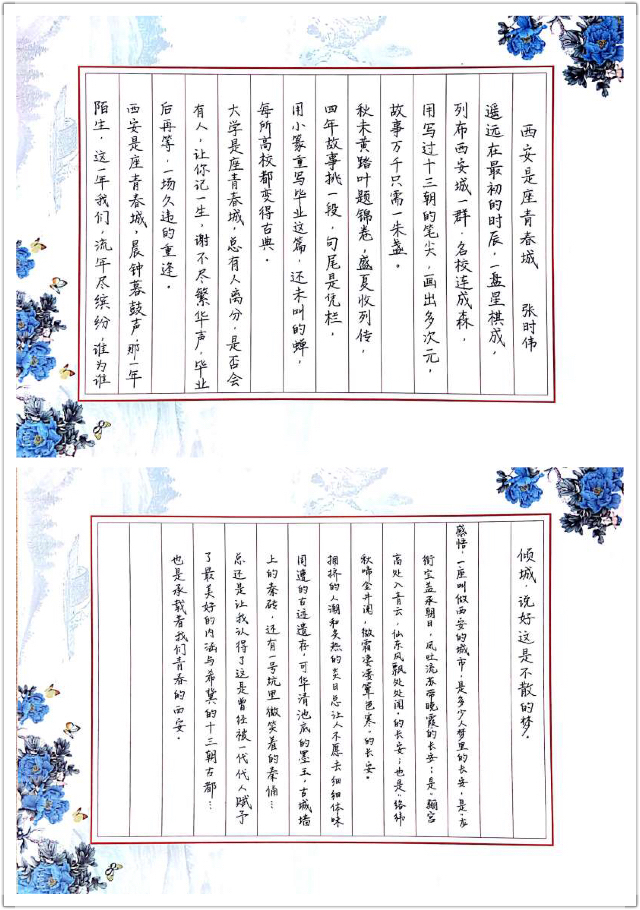 西安是座青春城 张时伟
遥远在最初的时辰，一盘星棋成，
列布西安城一群，名校连成森，
用写过十三朝的笔尖，画出多次元，
故事万千只需一朱盏。
秋未黄踏叶题锦卷，盛夏收列传，
四年故事挑一段，句尾是凭栏，
用小篆重写毕业这篇，还未叫的蝉，
每所高校都变得古典。
大学是座青春城，总有人离分，是否会
有人，让你记一生，谢不尽繁华声，毕业
后再等，一场久违的重逢。
西安是座青春城，晨钟暮鼓声，那一年
陌生，这一年我们，流年尽缤纷，谁为谁
倾城，说好这是不散的梦。
感悟，一座叫做西安的城市，是多少人梦里的长安，是“龙
衔宝盖承朝日，凤吐流苏带晚霞的长安；是“骊宫
高处入青云，仙乐风飘处处闻”的长安；也是“络纬
秋啼金井阑，微霜凄凄簟色寒”的长安。
拥挤的人潮和炎热的炎日总让人不愿去细细体味
周遭的古迹遗存，可华清池底的墨玉，古城墙
上的秦砖，还有一号坑里微笑着的秦俑…
总还是让我认得了这是曾经被一代代人赋予
了最美好的内涵与希冀的十三朝古都…
也是承载着我们青春的西安。